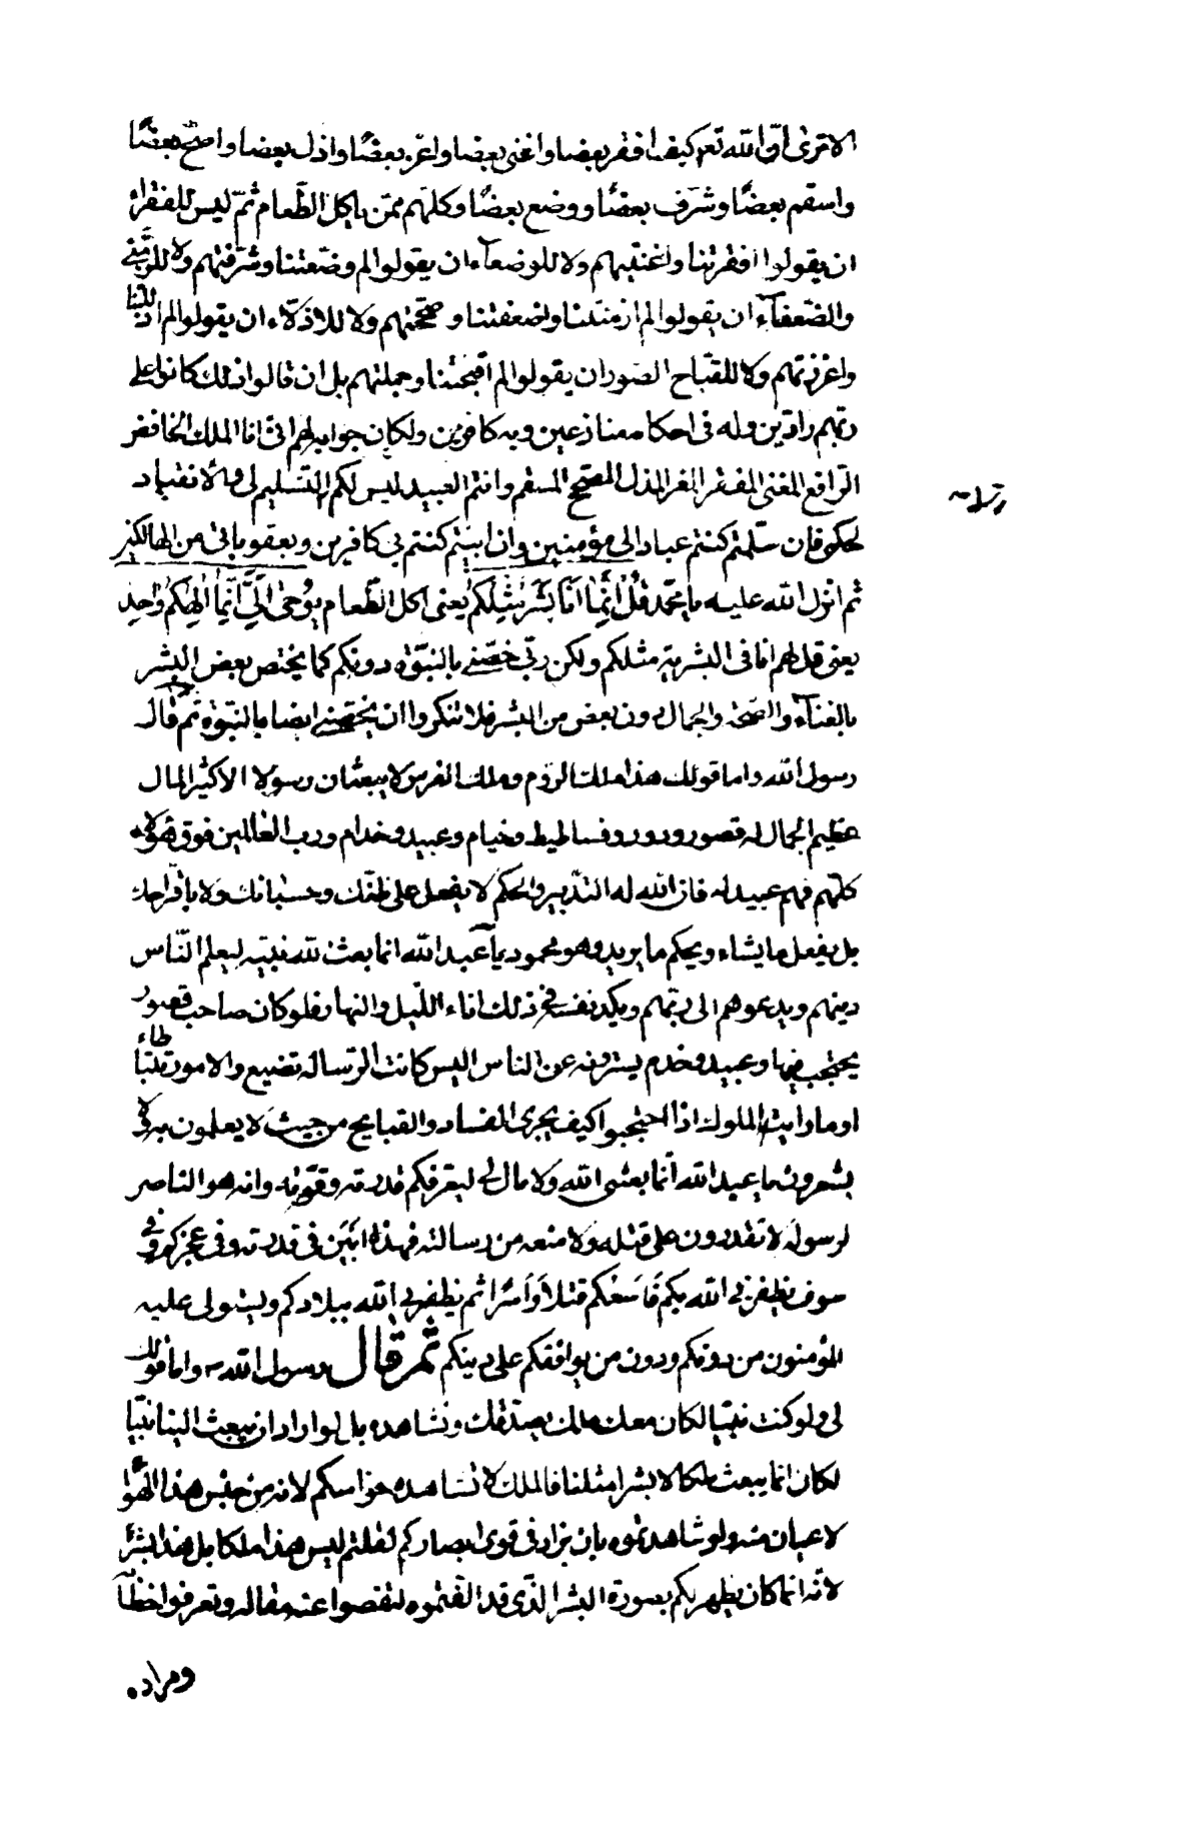 الا ترى انّ الله تعم كيف افقر بعضا واغنى بعضا واعزّ بعضًا واذل بعضا واصحّ بعضًا
واسقم بعضًا وشرّف بعضًا ووضع بعضًا وكلّهم ممّن ياكل الطّعام ثمّ ليس للفقراء
ان يقولوا افقرتنا واغنيتهم ولا للوضعاء ان يقولوا لم وضعتنا وشرّفتهم ولا للزّمنى
والضّعفاء ان يقولوا لم ازمنتنا واضعفتنا وصحّحتهم ولا للاذلاّء ان يقولوا لم اذللتنا
واعززتهم ولا للقباح الصّور ان يقولوا لم اقبحتنا وجملتهم بل ان قالوا ذلك كانوا على
ربّهم رادّين وله فى احكامه منازعين وبه كافرين ولكان جوابه لهم انى انا الملك الخافض
الرّافع المغنى المفقر المعز المذل المصحّح المسقم وانتم العبيد ليس لكم الا التسليم لى والانقياد
لحكمى فان سلّمتم كنتم عبادا لى مؤمنين وان ابيتم كنتم بى كافرين وبعقوباتى من الهالكين
ثم انزل الله عليه يا محمّد قُلْ اِنَّما اَنَا بَشَرٌ مِثْلُكُمْ يعنى اكل الطّعام يُوُحى اِلَىَّ اَنَّما اِلهُكُمْ واحِدٌ
يعنى قل لهم انا فى البشرية مثلكم ولكن ربّى خصّنى بالنبوّة دونكم كما يختص بعض البشر
بالغناء والصّحّة والجمال دون بعض من البشر فلا تنكروا ان يختصّنى ايضا بالنّبوّة ثمّ قال
رسول الله واما قولك هذا ملك الرّوم وملك الفرس لا يبعثان رسولا الا كثير المال
عظيم الجمال له قصور ودور وفساطيط وخيام وعبيد وخدام ورب العالمين فوق هؤلاء
كلّهم فهم عبيد له فان الله له التّدبير والحكم لا يفعل على ظنّك وحسبانك ولا باقتراحك
بل يفعل ما يشاء ويحكم ما يريد وهو محمود يا عبد الله انما بعث الله نبيّه ليعلم النّاس
دينهم ويدعوهم الى ربّهم ويكد نفسه فى ذلك اناء اللّيل والنهار فلو كان صاحب قصور
يحتجب فيها وعبيد وخدم يسترونه عن الناس اليس كانت الرّسالة تضيع والامور تتباطاء
او ما رايت الملوك اذا احتجبوا كيف يجرى الفساد والقبايح من حيث لا يعلمون به ولا
يشعرون يا عبد الله انّما بعثنى الله ولا مال لى ليعرّفكم قدرته وقوّته وانه هو الناصر
لرسوله لا تقدرون على قتله ولا منعه من رسالته فهذا ابْيَن فى قدرته وفى عجزكم وفى
سوف يظفرنى الله بكم فَاَسَعُكم قتلاً وَاَسْرًا ثم يظفرنى الله ببلادكم ويستولى عليه
المؤمنون من دونكم ودون من يوافقكم على دينكم ثم قال رسول الله ص واما قولك
لى ولو كنت نبيّا لكان معك ملك يصدّقك ونشاهده بل لو اراد ان يبعث الينا نبيّا
لكان انما يبعث ملكا لا بشرا مثلنا فالملك لا تشاهده حواسكم لانه من جنس هذا الهوا
لا عيان منه ولو شاهدتموه بان يزاد فى قوى ابصاركم لقلتم ليس هذا ملكا بل هذا بشرٌ
لانّه انما كان يظهر لكم بصورة البشر الذّى قد الفتموه لتفهموا عنه مقاله وتعرفوا خطابه
ومراده